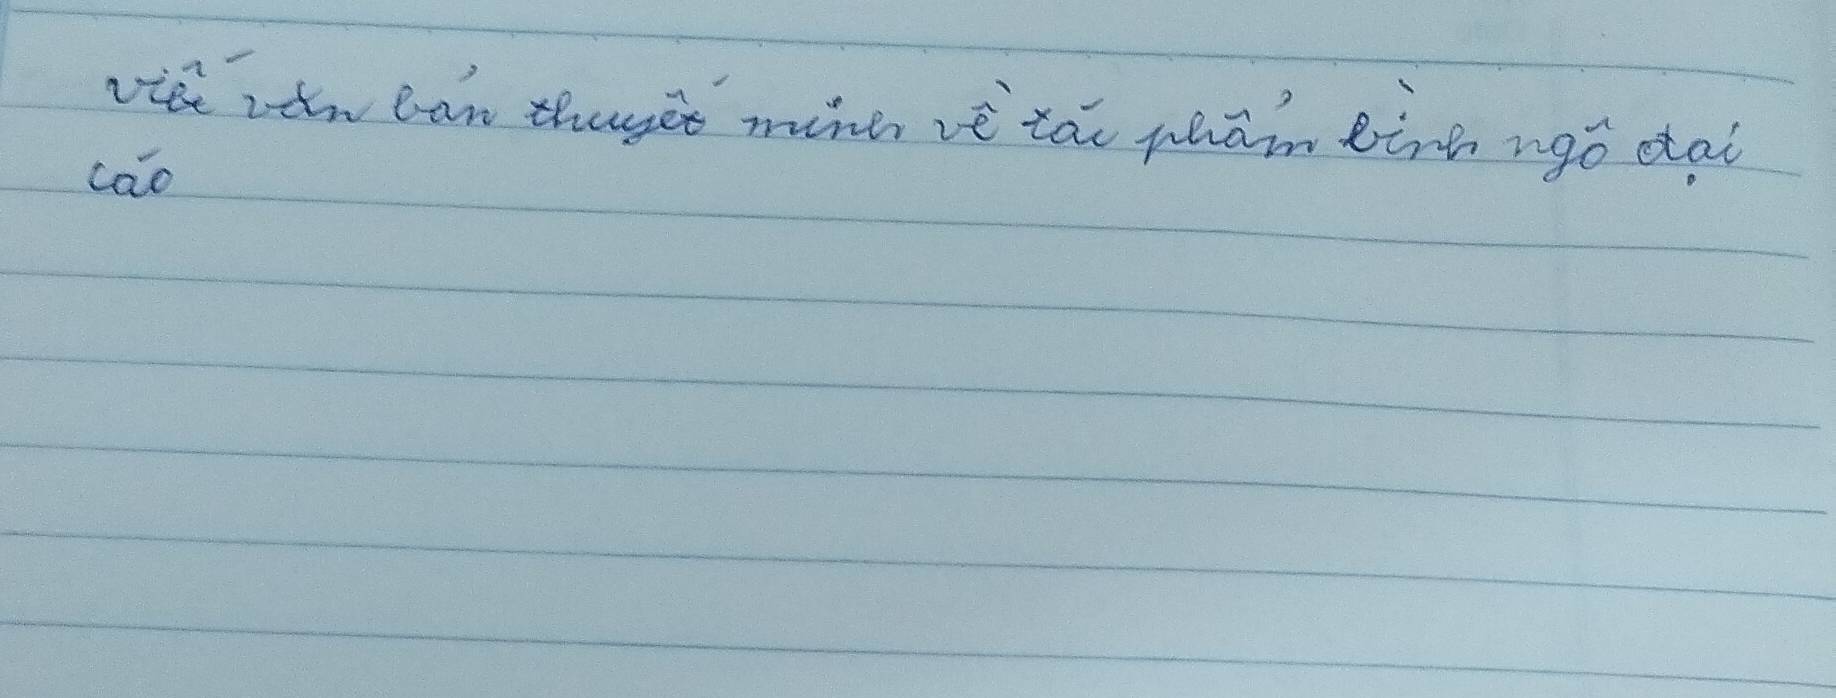 viết văn bản thuyết minh về tác phẩm bình ngô đại
cáo